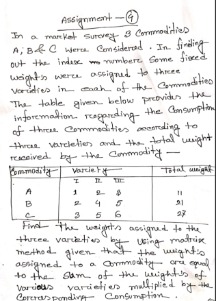 Assignment - 9
In a market survey 3 commodities
A, B & C were considered. In finding
out the index numbers some fixed
weights were assigned to three
varieties in each of the commodities
The table given below provides the
information regarding the consumption
of three commodities according to
three varieties and the total weight
received by the commodity -
Commodity Variety Total weight
I II III
A 1 2 3 11
B 2 4 5 21
C 3 5 6 27
Find the weights assigned to the
three varieties by using matrix
method given that the weights
assigned to a commodity are equal
to the sum of the weights of
various varieties multiplied by the
corresponding consumption.